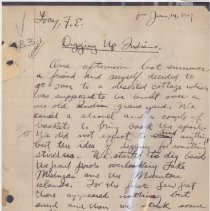 for Jan. 14, 1927
Love, F. E.
Digging Up Indians.
One afternoon last summer
a friend and myself decided to
go over to a deserted cottage which
was supposed to be built over in
an old Indian grave yard. We
secured a shovel and a couple of
baskets to bring back the spoils.
We did not expect to find anything
but the idea of digging for something
strikes us. We started to dig beside
the front porch overlooking Lake
Michigan and the Manitou
islands. For the first several feet
there appeared nothing but
sand and then we struck some